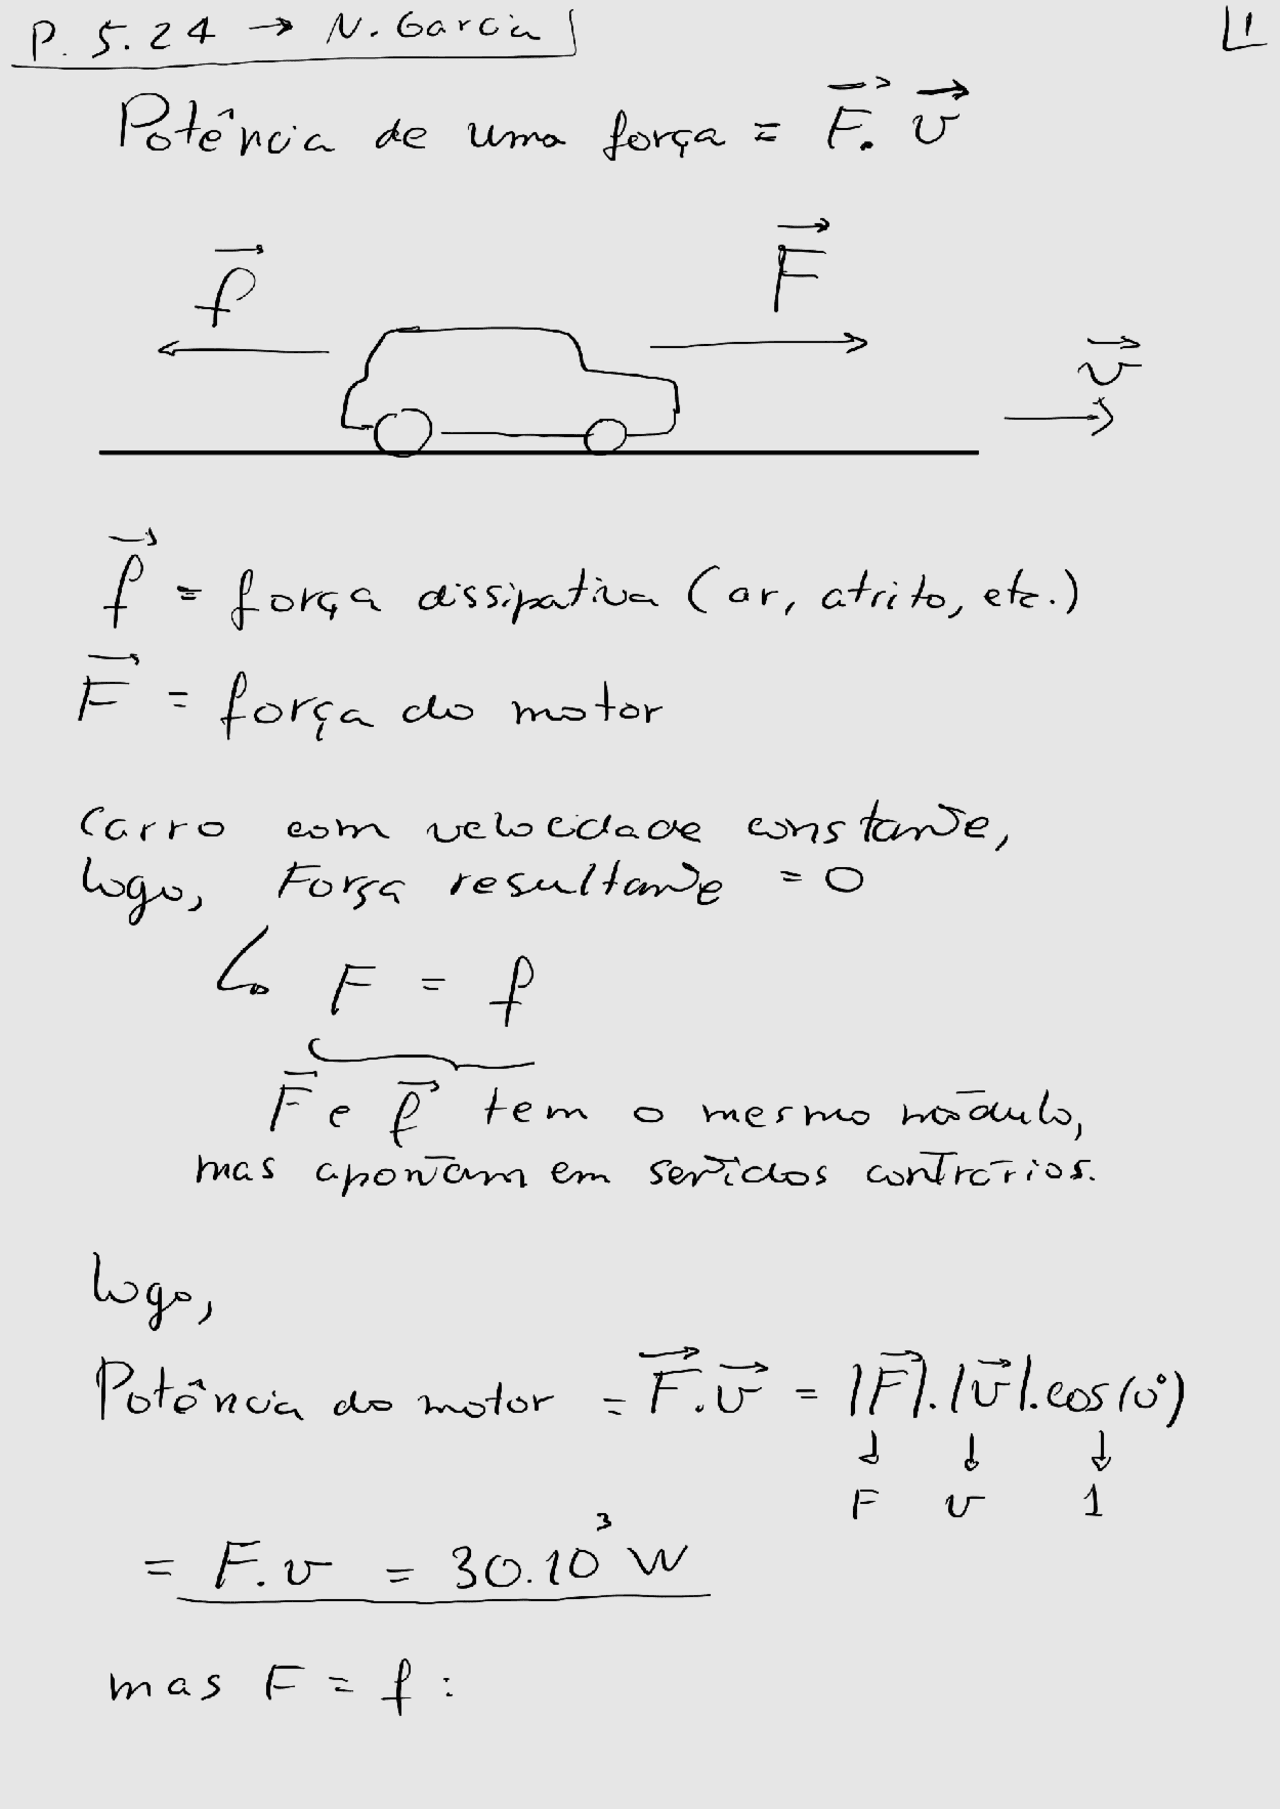 P. 5.24 → N. Garcia
1
Potência de uma força = F⃗. v⃗
f⃗
F⃗
v⃗
f⃗ = força dissipativa (ar, atrito, etc.)
F⃗ = força do motor
Carro com velocidade constante,
logo, Força resultante = 0
↳ F = f
F⃗ e f⃗ tem o mesmo módulo,
mas apontam em sentidos contrários.
logo,
Potência do motor = F⃗.v⃗ = |F⃗|.|v⃗|.cos(0°)
↓ ↓ ↓
F v 1
= F.v = 30.10³ W
mas F = f :